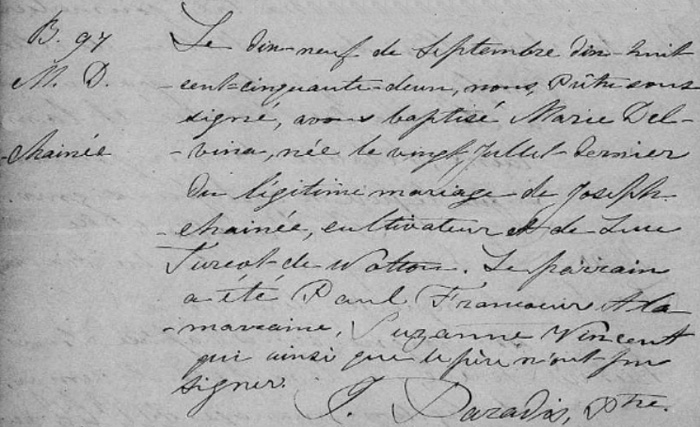 B. 97
M. D.
chainée
Le dix-neuf de Septembre dix-huit
cent-cinquante-deux, nous, Prêtre sous-
signé, avons baptisé Marie Del-
-vina, née le vingt Juillet dernier
du légitime mariage de Joseph
chainée, cultivateur et de Luce
Turcot de Wotton. Le parrain
a été Paul Francoeur & la
marraine, Suzanne Vincent
qui ainsi que le père n'ont pu
signer.
J. Paradis, Ptre.